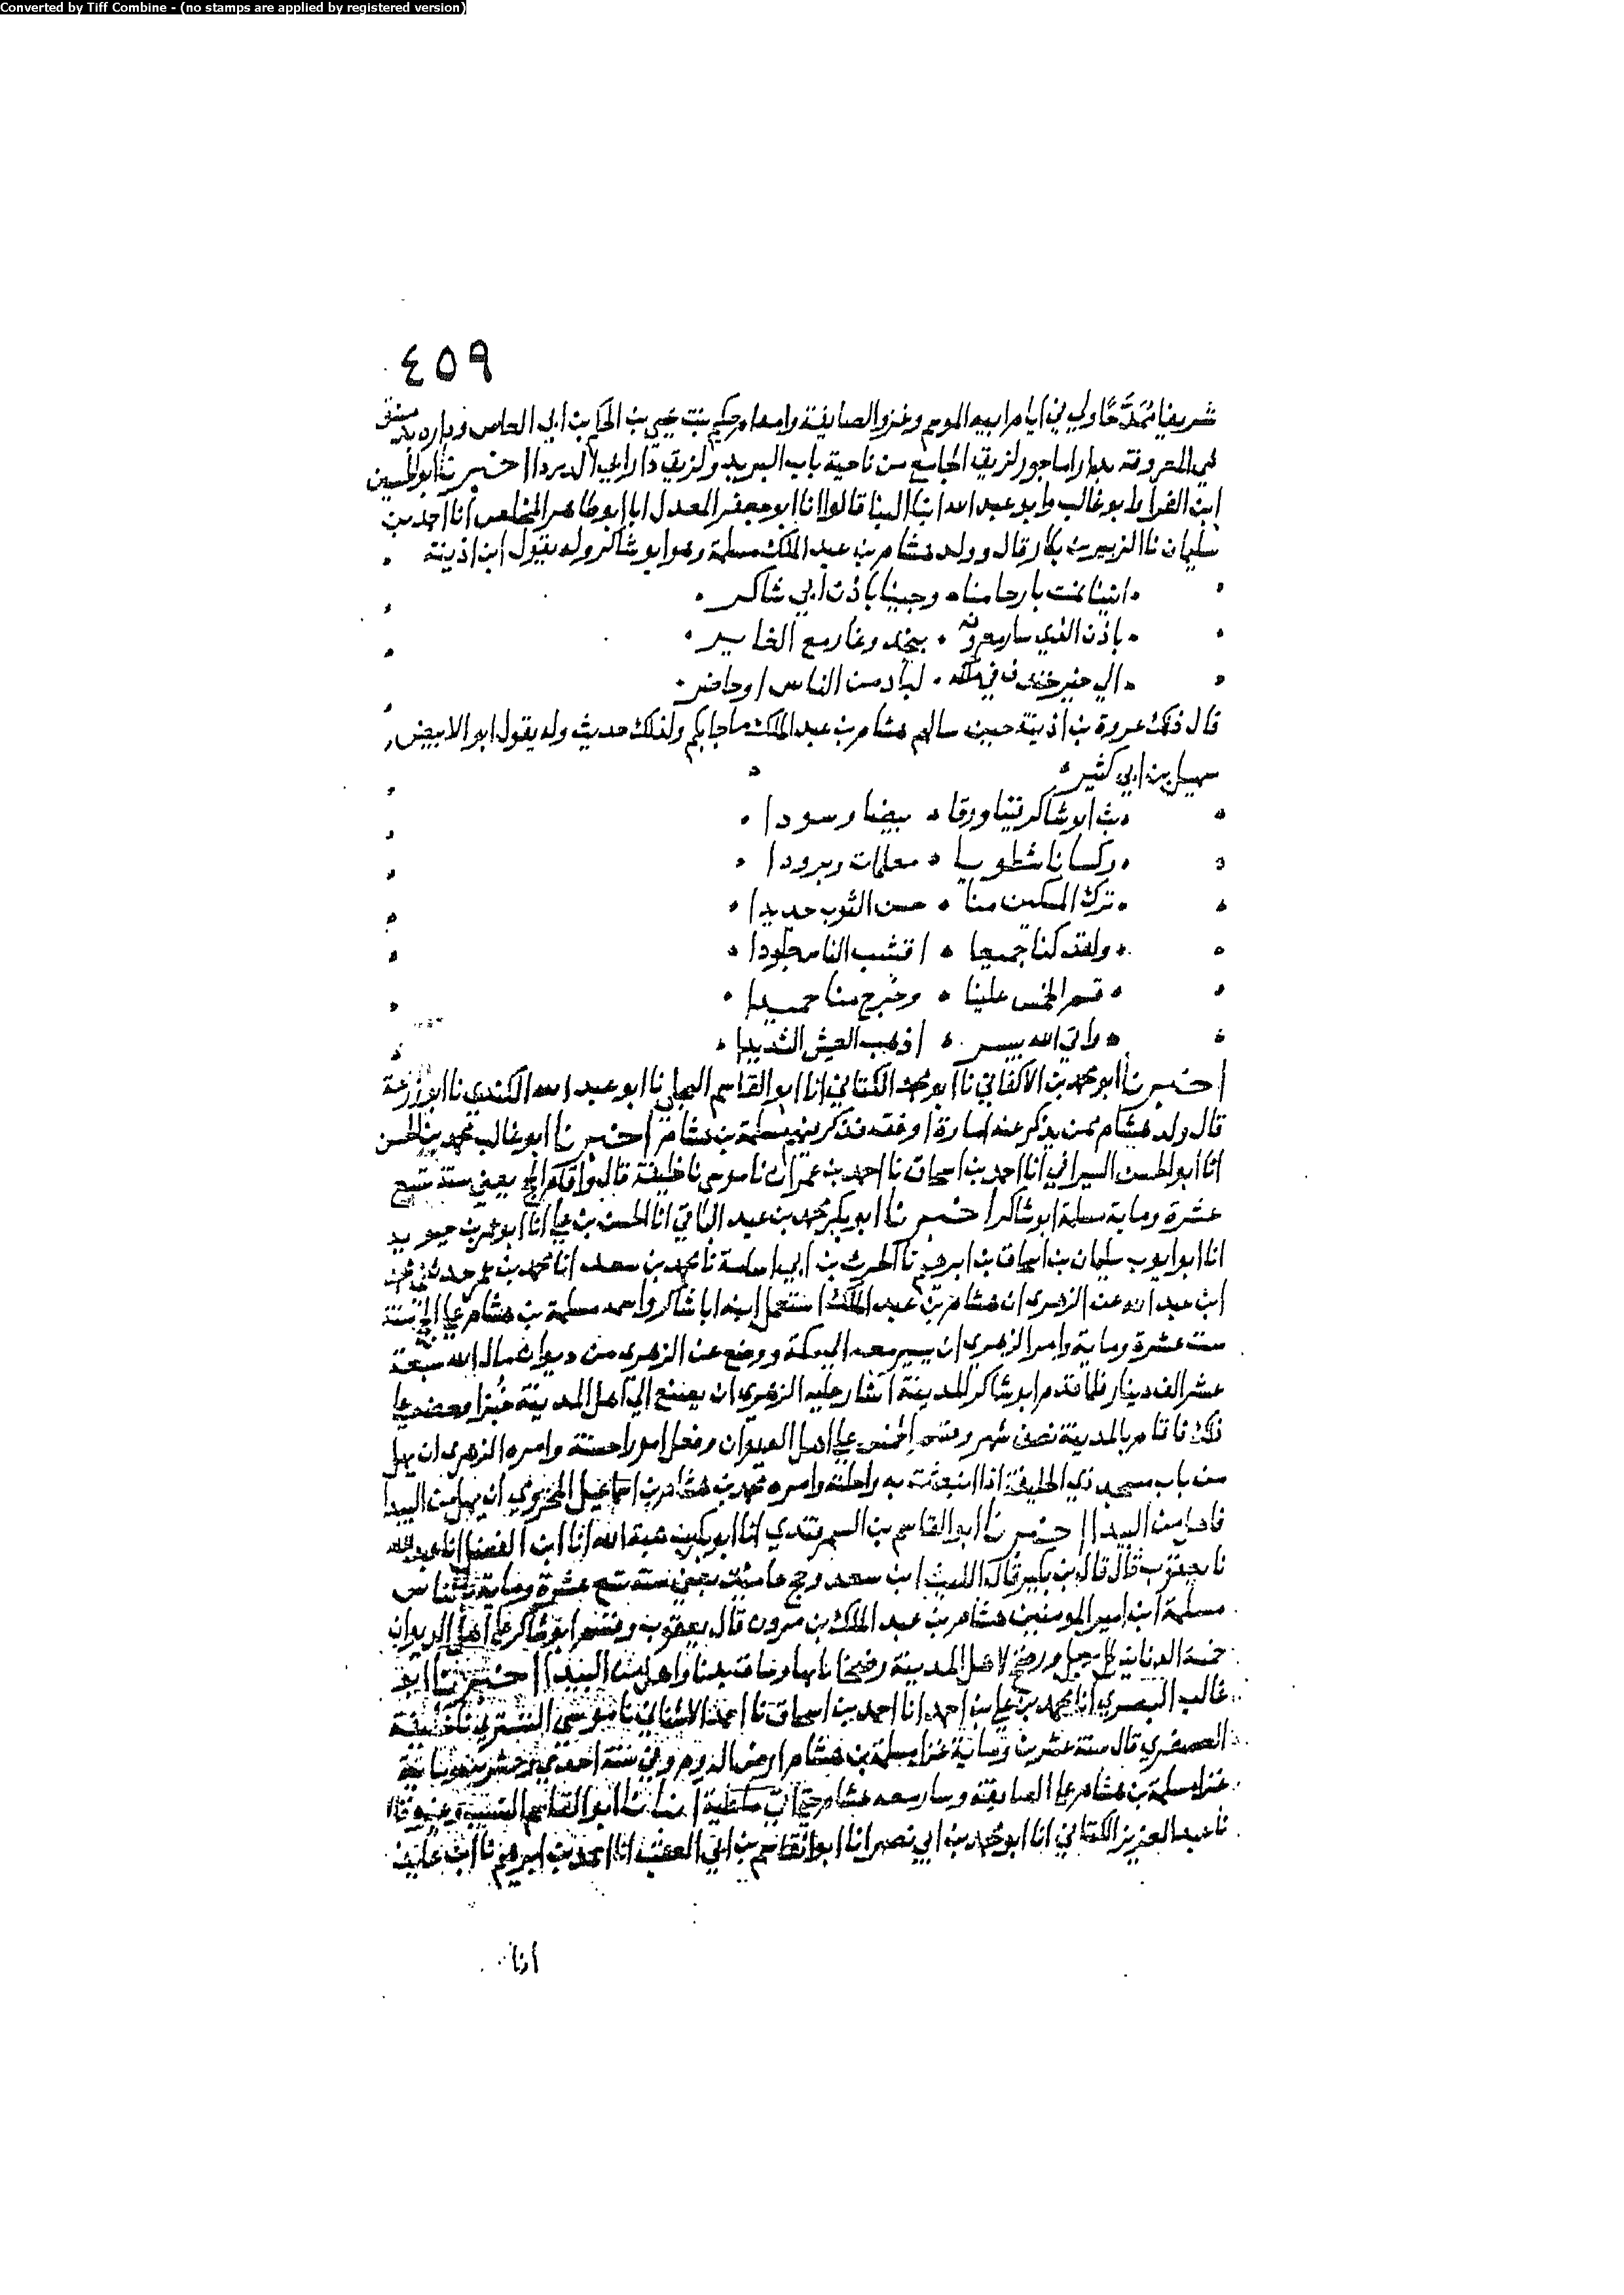 Converted by Tiff Combine - (no stamps are applied by registered version)
٤٥٩
شريفا مُمَدَّحًا ولي في ايام ابيه الموسم وغزو الصايفة وامه ام حكيم بنت يحيى بن الحكم بن ابي العاص وداره بدمشق
هي المعروفة بدار لزيق الجامع من ناحية باب البريد ولزيق دار ابي الدرداء اخبرنا ابو الحسين
ابن الفرا وابو غالب وابو عبد الله ابنا البنا قالوا انا ابو جعفر المعدل انا ابو طاهر المخلص انا احمد بن
سليمان نا الزبير بن بكار قال وولد هشام بن عبد الملك مسلمة وهو ابو شاكر وله يقول ابن اذينة
اتينا نمت بارحامنا وجينا باذن ابي شاكر
باذن الذي سار معروفه بنجد وغار مع الغاير
الى خير خندف في ملكه لباد من الناس او حاضر
قال ذلك عروة بن اذينة حين سالهم هشام بن عبد الملك ما جا بكم ولذلك حديث وله يقول ابو الابيض
سهيل بن ابي كثير
بث ابو شاكر فينا ورقا بيضا وسودا
وكسانا شطويا معلمات وبرودا
ترك المسكين منا حسن الثوب جديدا
ولقد كنا جميعا
قسم الخمس علينا وخرج منا حميدا
واتى الله بيسر اذهب العيش الشديدا
اخبرنا ابو محمد بن الاكفاني نا ابو محمد الكتاني انا ابو القاسم البجلي نا ابو عبد الله الكندي نا ابو زرعة
قال ولد هشام ممن يذكر عنه امارة او فقه فذكرهم مسلمة بن هشام اخبرنا ابو غالب محمد بن الحسن
انا ابو الحسن السيرافي انا احمد بن اسحاق نا احمد بن عمران نا موسى نا خليفة قال واقام الحج يعني سنة تسع
عشرة وماية مسلمة ابو شاكر اخبرنا ابو بكر محمد بن عبد الباقي انا الحسن بن علي انا ابو عمر بن حيويه
انا ابو ايوب سليمان بن اسحاق بن ابرهيم نا الحرث بن ابي اسامة نا محمد بن سعد انا محمد بن عمر حدثني محمد
ابن عبد الله عن الزهري ان هشام بن عبد الملك استعمل ابنه ابا شاكر واسمه مسلمة بن هشام على الحج سنة
ست عشرة وماية وامر الزهري ان يسير معه الى مكة ووضع عن الزهري من ديوان مال الله سبعة
عشر الف دينار فلما قدم ابو شاكر المدينة اشار عليه الزهري ان يصنع الى اهل المدينة خيرا وحضه على
ذلك فاقام بالمدينة نصف شهر وقسم الخمس على اهل الديوان وفعل امورا حسنة وامره الزهري ان يهل
من باب مسجد ذي الحليفة اذا انبعثت به راحلته وامره محمد بن هشام بن اسماعيل المخزومي ان يهل من البيدا
فاهل من البيدا اخبرنا ابو القاسم بن السمرقندي انا ابو بكر بن هبة الله انا ابن الفضل انا عبد الله
نا يعقوب قال قال بن بكير قال الليث ابن سعد وحج عاميذ يعني سنة تسع عشرة وماية بالناس
مسلمة ابن امير المومنين هشام بن عبد الملك بن مرون قال يعقوب وقسم ابو شاكر على اهل الديوان
خمسة الدنانير لكل رجل ورضخ لاهل المدينة رضخا واهل من البيدا اخبرنا ابو
غالب البصري انا محمد بن علي بن احمد انا احمد بن اسحاق نا احمد الاشناني نا موسى التستري نا خليفة
العصفري قال سنة عشرين وماية غزا مسلمة بن هشام ارض الروم وفي سنة احدى وعشرين وماية
غزا مسلمة بن هشام على الصايفة وسار معه هشام حتى اتى ملطية انبانا ابو القاسم النسيب وغيره قالا
نا عبد العزيز الكتاني انا ابو محمد بن ابي نصر انا ابو القاسم بن ابي العقب انا احمد بن ابرهيم نا ابن عايذ
انا